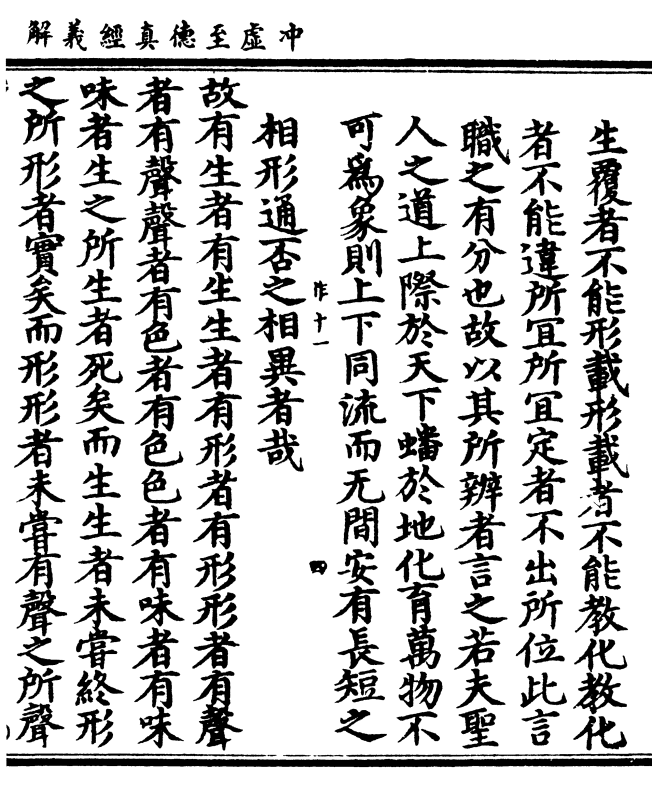 冲虛至德真經義解
生覆者不能形載形載者不能教化教化
者不能違所宜所宜定者不出所位此言
職之有分也故以其所辨者言之若夫聖
人之道上際於天下蟠於地化育萬物不
可爲象則上下同流而无間安有長短之
作十一
四
相形通否之相異者哉
故有生者有生生者有形者有形形者有聲
者有聲聲者有色者有色色者有味者有味
味者生之所生者死矣而生生者未嘗終形
之所形者實矣而形形者未嘗有聲之所聲